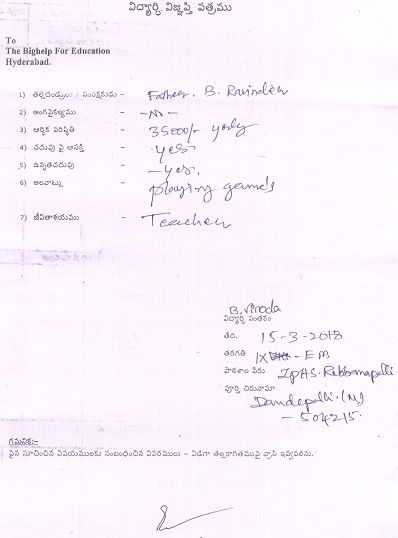 విద్యార్థి విజ్ఞప్తి పత్రము
To
The Bighelp For Education
Hyderabad.
1) తల్లిదండ్రులు / సంరక్షకుడు - Father. B. Ravinder
2) అంగవైకల్యము - -No-
3) ఆర్థిక పరిస్థితి - 35000/- yearly
4) చదువు పై ఆసక్తి - yes
5) ఉన్నతచదువు - -yes.
6) అలవాట్లు - playing game's
7) జీవితాశయము - Teacher
B. Viroda
విద్యార్థి సంతకం
తేది. 15-3-2018
తరగతి IX - EM
పాఠశాల పేరు ZPHS. Rebbanapalli
పూర్తి చిరునామా
Dandepalli. (M)
- 504215.
గమనిక:-
పైన సూచించిన విషయములకు సంబంధించిన వివరములు - విడిగా తెల్లకాగితముపై వ్రాసి ఇవ్వవలెను.